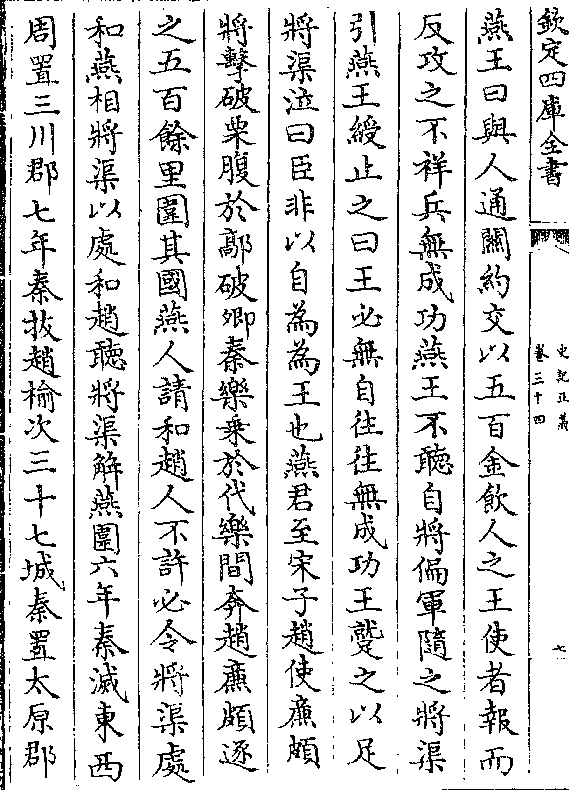 欽定四庫全書
史記正義
卷三十四
七
燕王曰與人通關約交以五百金飲人之王使者報而
反攻之不祥兵無成功燕王不聽自將偏軍隨之將渠
引燕王綬止之曰王必無自往往無成功王蹵之以足
將渠泣曰臣非以自為為王也燕君至宋子趙使亷頗
將擊破栗腹於鄗破卿秦樂乗於代樂間奔趙亷頗逐
之五百餘里圍其國燕人請和趙人不許必令將渠處
和燕相將渠以處和趙聽將渠解燕圍六年秦滅東西
周置三川郡七年秦拔趙榆次三十七城秦置太原郡